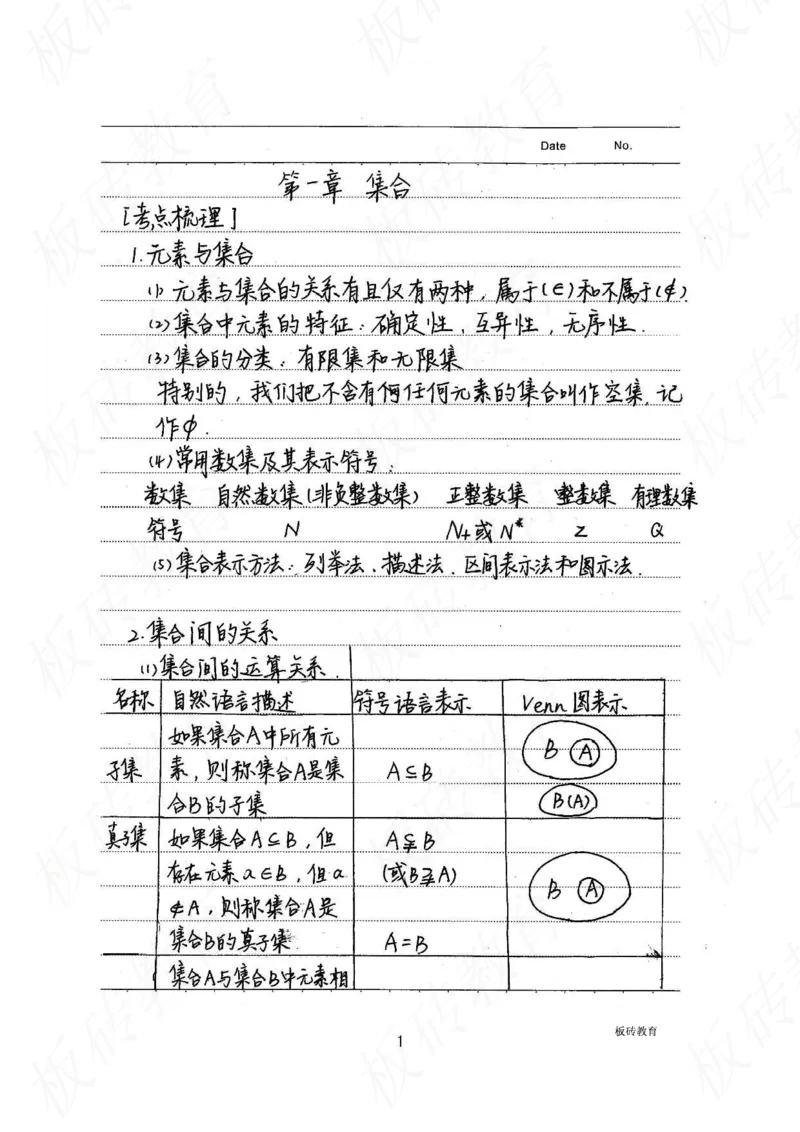 Date No.
第一章 集合
[考点梳理]
1.元素与集合
(1) 元素与集合的关系有且仅有两种，属于(∈)和不属于(∉)
(2)集合中元素的特征：确定性、互异性，无序性.
(3)集合的分类：有限集和无限集
特别的，我们把不含有任何元素的集合叫作空集，记
作φ.
(4)常用数集及其表示符号：
数集 自然数集(非负整数集) 正整数集 整数集 有理数集
符号 N N+或N* Z Q
(5)集合表示方法：列举法、描述法、区间表示法和图示法.
2.集合间的关系
(1)集合间的运算关系.
名称 自然语言描述 符号语言表示 Venn图表示
如果集合A中所有元 B A
子集 素，则称集合A是集 A⊆B
合B的子集 B(A)
真子集 如果集合A⊆B，但 A⫋B
存在元素a∈B，但a (或B⫌A) B A
∉A，则称集合A是
集合B的真子集 A=B
集合A与集合B中元素相
板砖教育
1
板砖教育